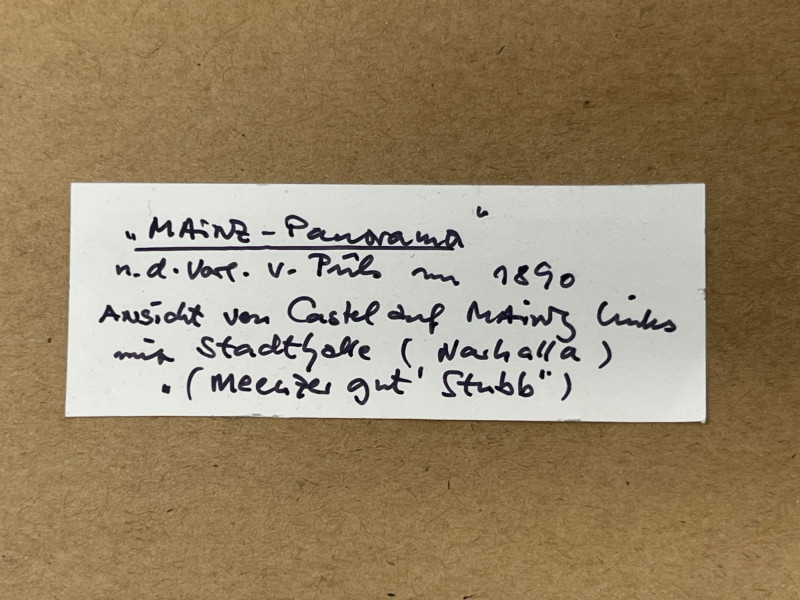 „MAiNZ - Panorama“
n. d. Vorl. v. um 1890
Ansicht von Castel auf MAiNZ links
mit Stadthalle ( Narhalla )
. ( Meenzer gut' Stubb" )